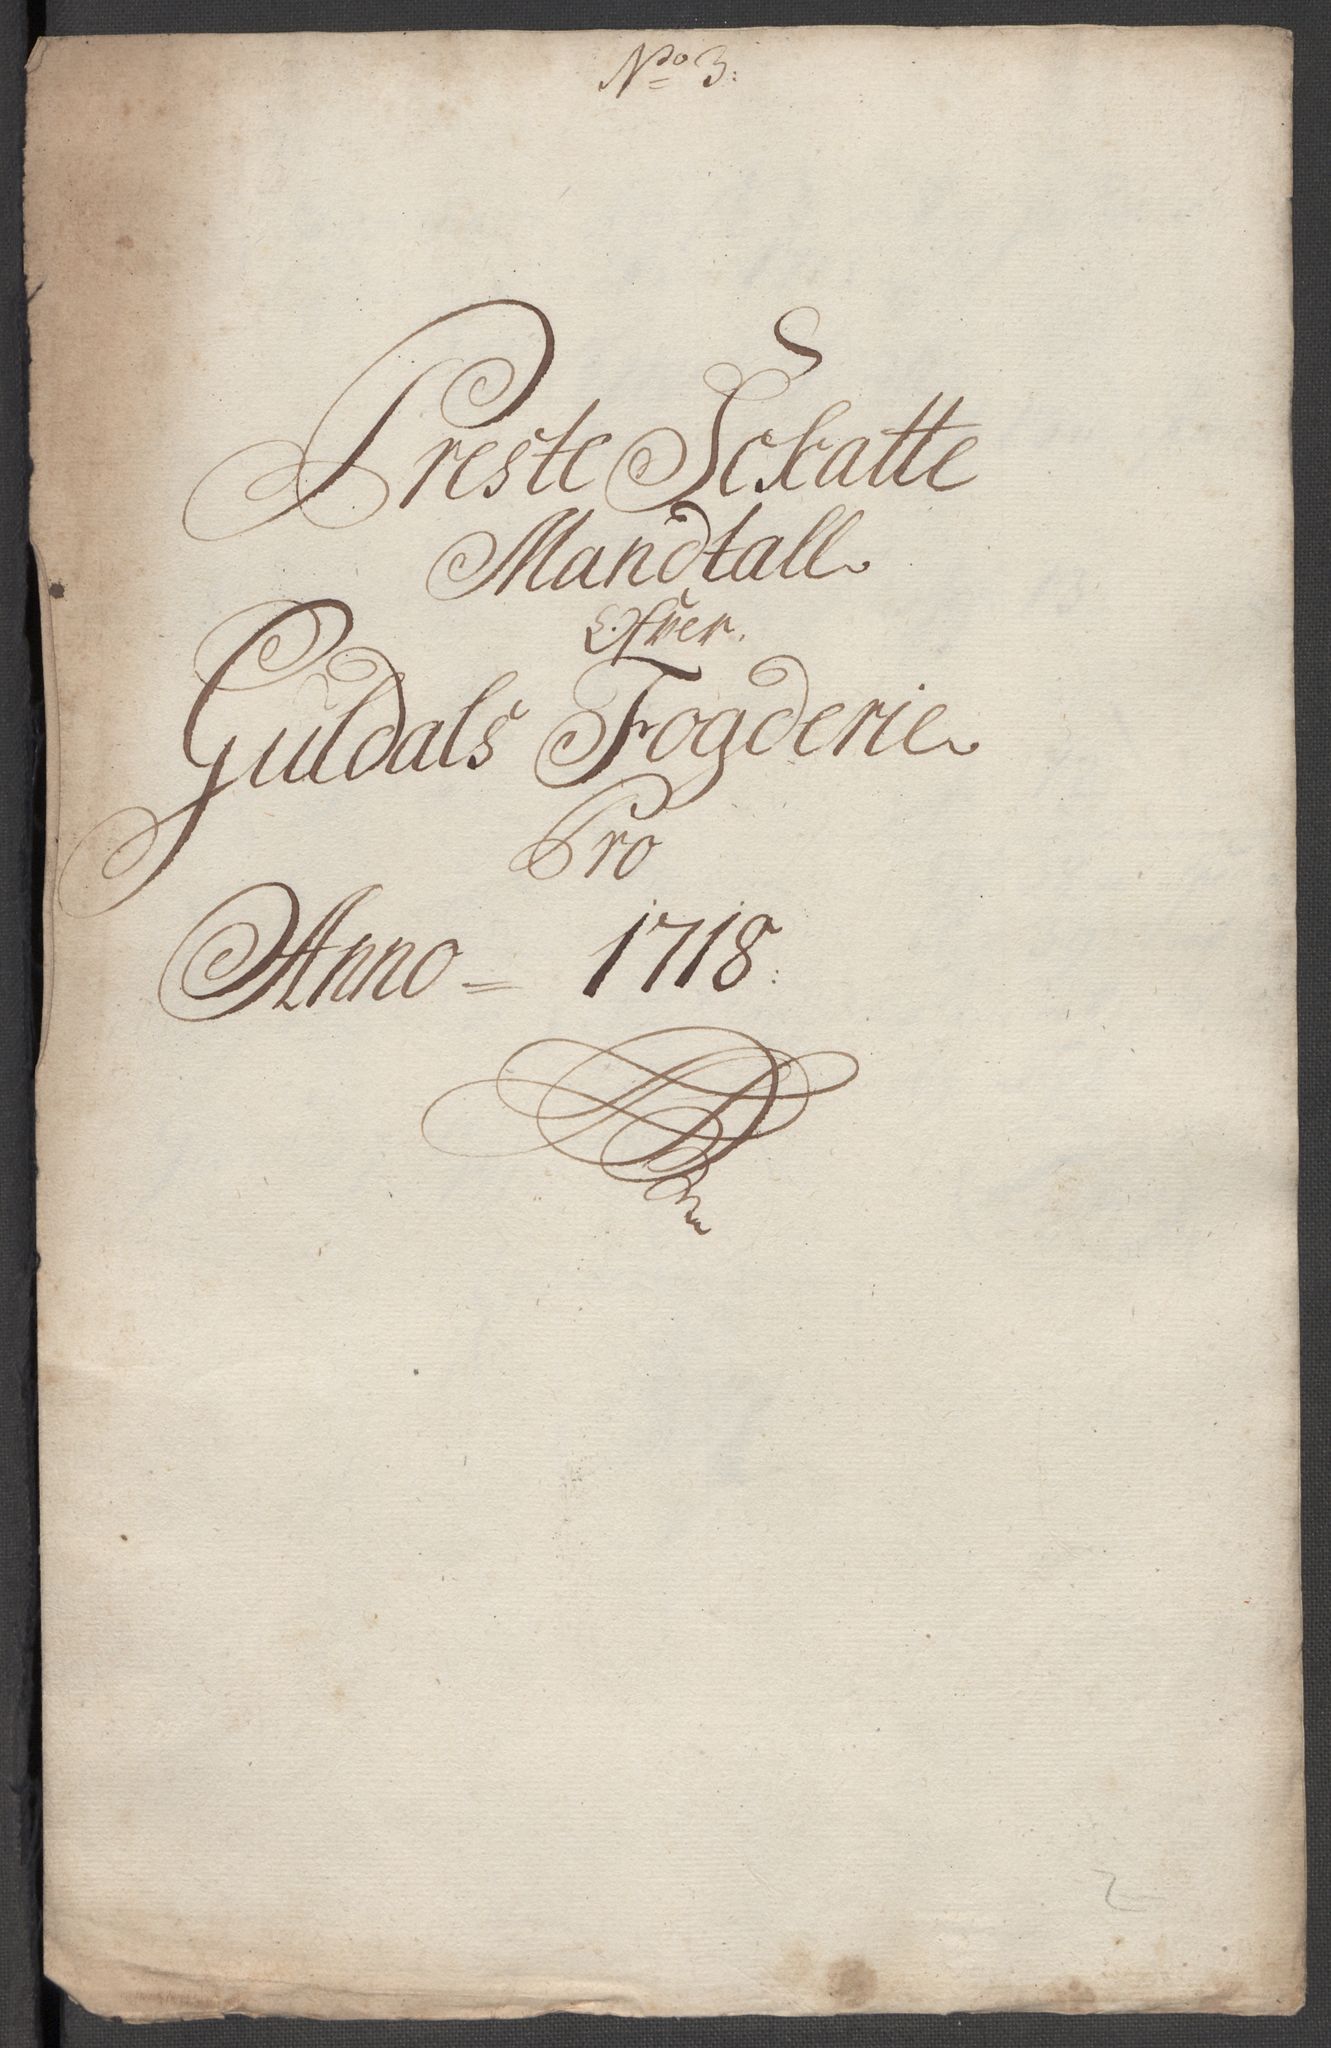 No 3:
Preste Schatte
Mandtall
Ofver
Guldals Fogderie
Pro
Anno = 1718:
2